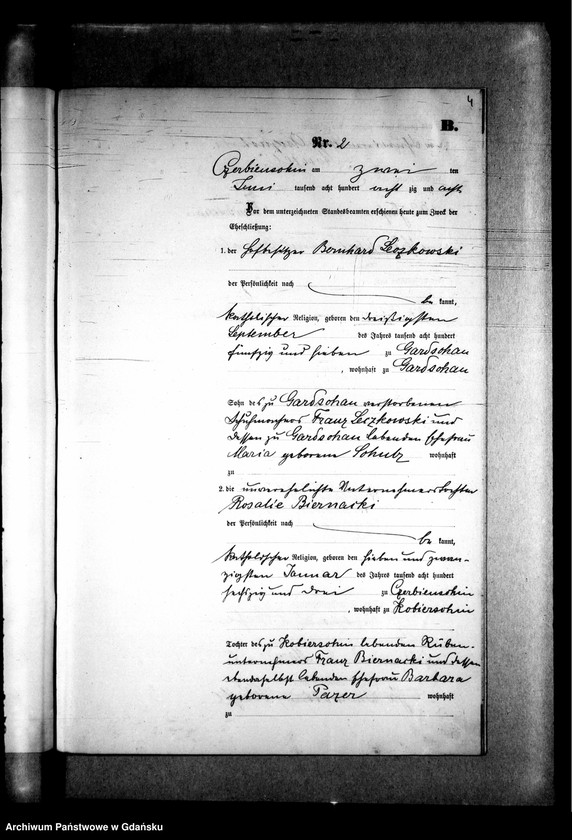 4
B.
Nr. 2
Czerbienschin am zwei ten
Juni tausend acht hundert acht zig und acht
Vor dem unterzeichneten Standesbeamten erschienen heute zum Zweck der
Eheschließung:
1. der Hofbesitzer Bernhard Leszkowski
der Persönlichkeit nach
be kannt,
katholischer Religion, geboren den dreißigsten
September des Jahres tausend acht hundert
fünfzig und sieben zu Gardschau
, wohnhaft zu Gardschau
Sohn des zu Gardschau verstorbenen
Schuhmachers Franz Leszkowski und
dessen zu Gardschau lebenden Ehefrau
Maria geborene Schulz wohnhaft
zu
2. die unverehelichte Unternehmerstochter
Rosalie Biernacki
der Persönlichkeit nach
be kannt,
katholischer Religion, geboren den sieben und zwan-
zigsten Januar des Jahres tausend acht hundert
sechszig und drei zu Czerbienschin
, wohnhaft zu Kobierschin
Tochter des zu Kobierschin lebenden Rüben-
unternehmers Franz Biernacki und dessen
ebendaselbst lebenden Ehefrau Barbara
geborene Pazer wohnhaft
zu
Archiwum Państwowe w Gdańsku